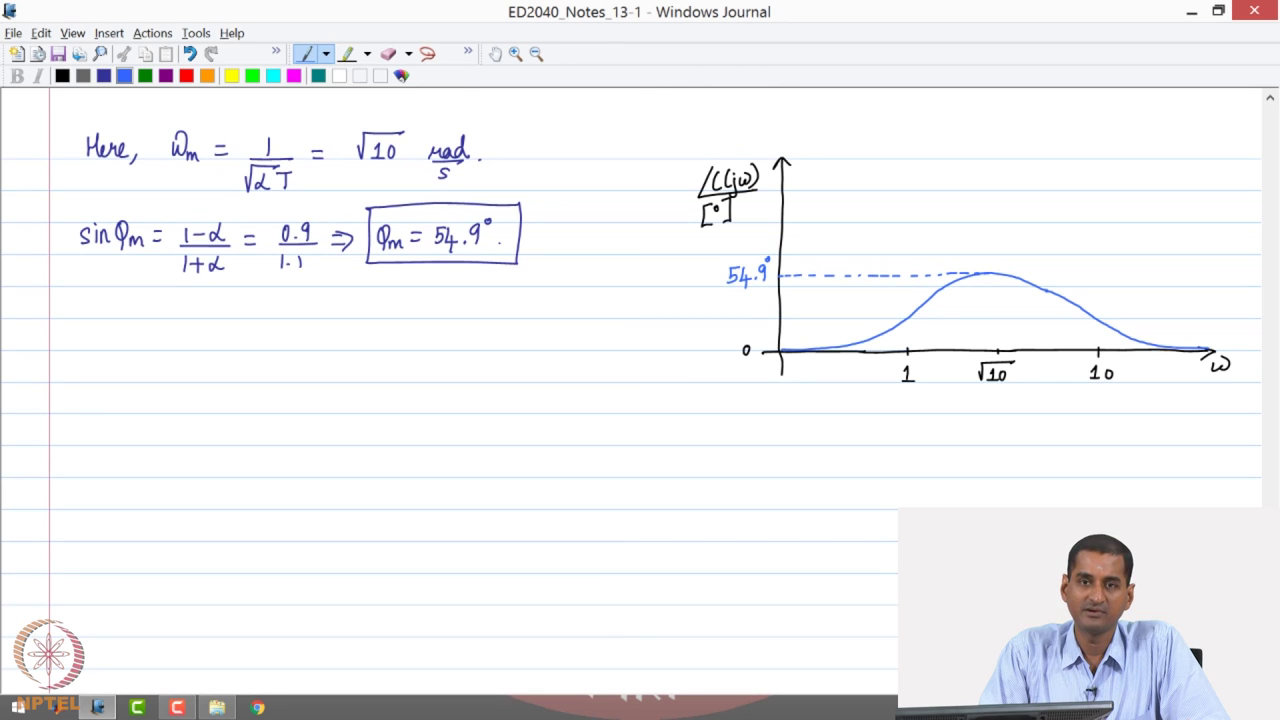 ED2040_Notes_13-1 - Windows Journal
File Edit View Insert Actions Tools Help
Here, ω_m = 1/(√α T) = √10 rad/s.
sin φ_m = (1-α)/(1+α) = 0.9/1.1 ⇒ φ_m = 54.9°.
/C(jω)
[°]
54.9°
0
1 √10 10 ω
NPTEL